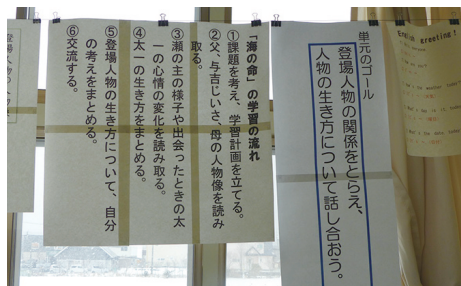 単元のゴール
登場人物の関係をとらえ、
人物の生き方について話し合おう。
「海の命」の学習の流れ
①課題を考え、学習計画を立てる。
②父、与吉じいさ、母の人物像を読み
取る。
③瀬の主の様子や出会ったときの太
一の心情の変化を読み取る。
④太一の生き方をまとめる。
⑤登場人物の生き方について、自分
の考えをまとめる。
⑥交流する。
English greeting!